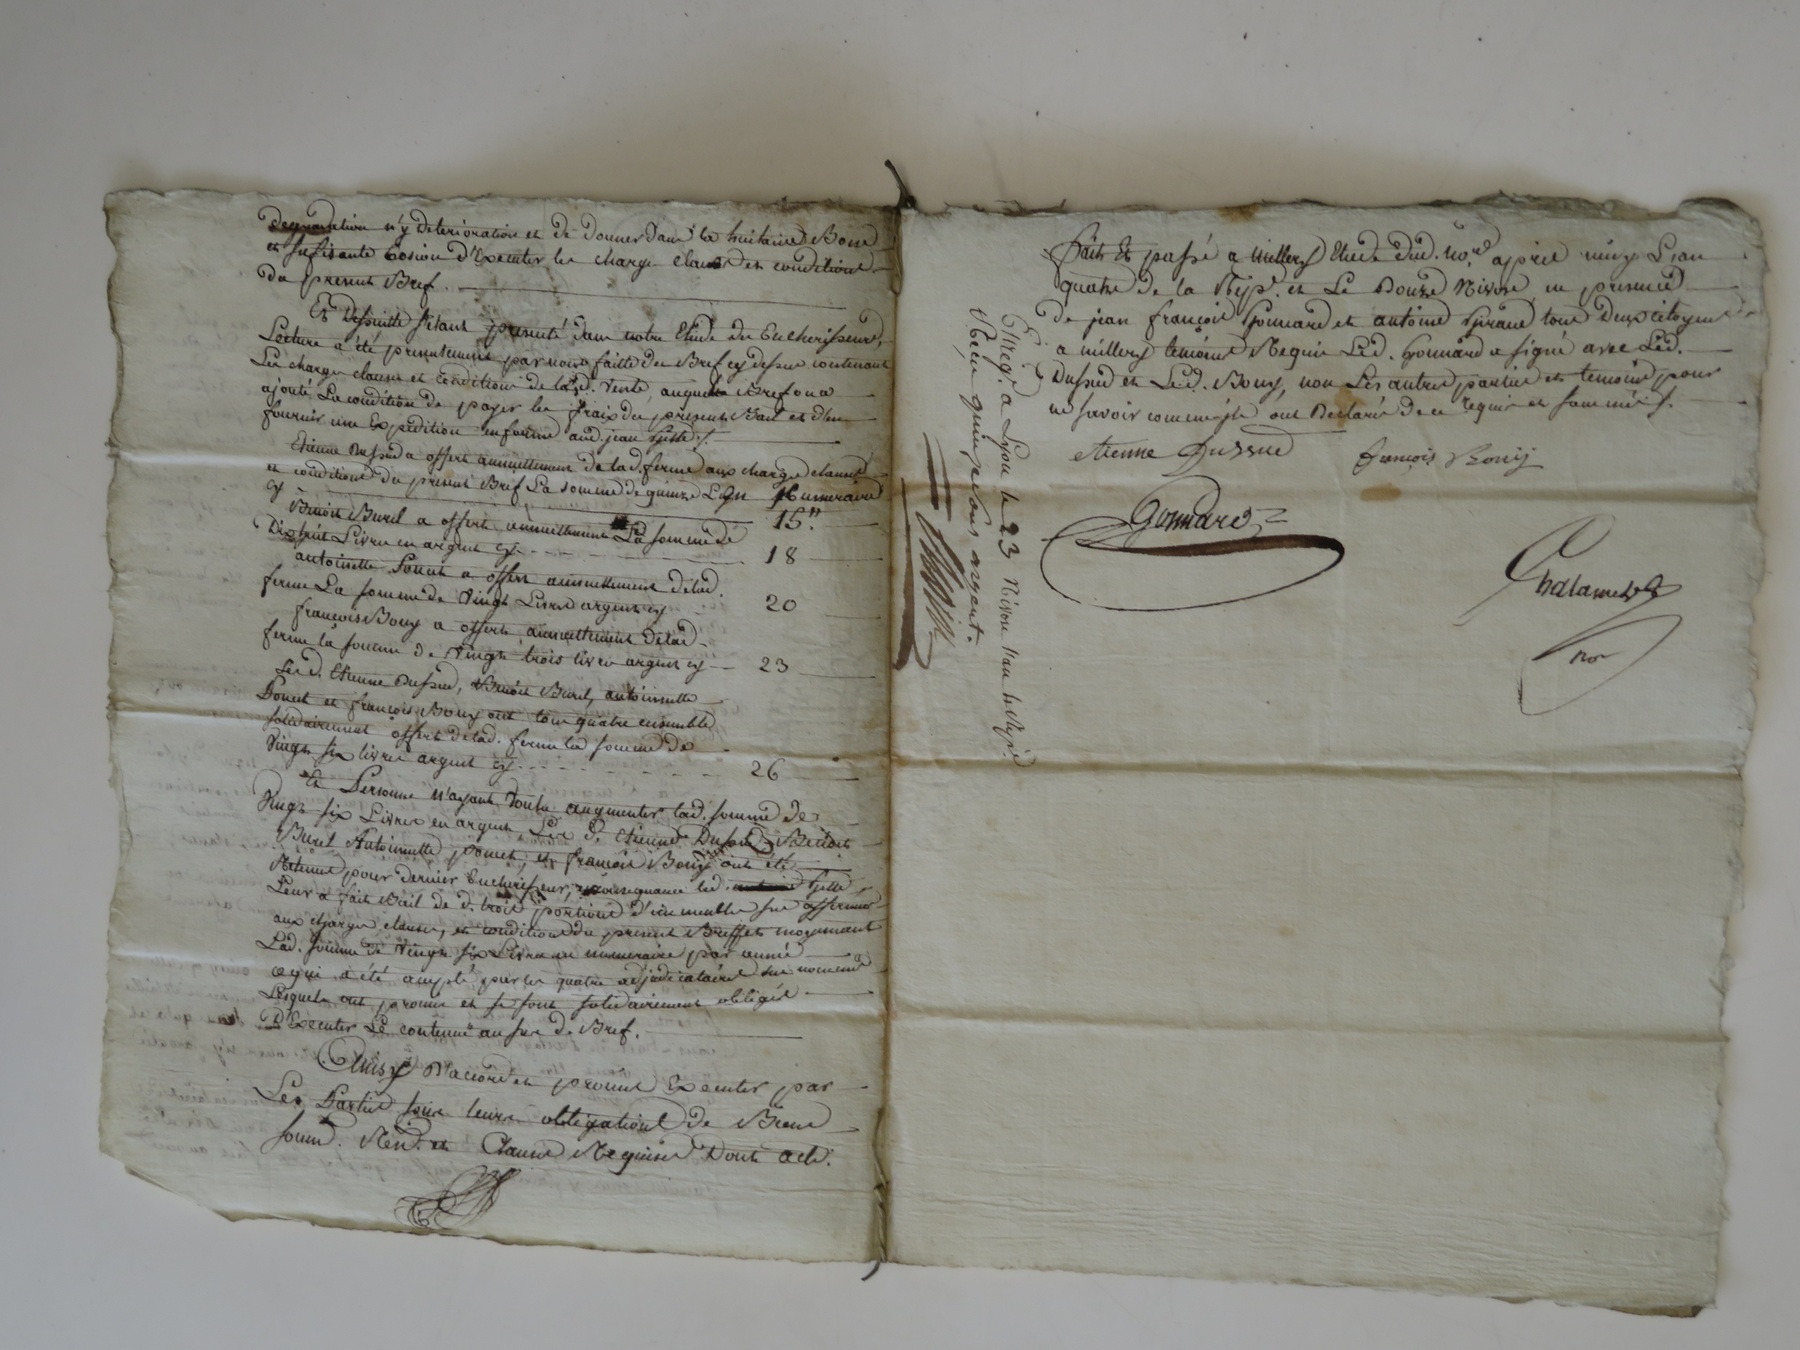 degradation n'y deterioration et de donner dans la huitaine Bonne
et sufisante Cosion d'Executer les charge clauses et conditions
du present Bref.
Et desuitte s'étant presenté dans notre Etude des Encherisseurs,
Lecture a été presentement par nous faitte du Bref cy dessus contenant
Les charge clauses et conditions de lad. vente, auquel Bref on a
ajouté La condition de payer les fraix du present Bail et d'en
fournir une Expedition en forme aud. jean
Etienne Dussud a offert annuellement de lad. ferme aux charge clauses
et conditions du present Bref La somme de quinze Numeraire
cy 15"
Benoit Burel a offert annuellement La somme de
Dixhuit Livres en argent cy 18
antoinette Ponut a offert annuellement de lad.
ferme La somme de vingt Livres argent cy 20
françois Bouy a offert annuellement de lad.
ferme la somme de vingt trois livres argent cy 23
Led. Etienne Dussud, Benoit Burel, antoinette
Ponut et françois Bouy ont tous quatre ensemble
solidairement offert de lad. ferme la somme de
vingt six livres argent cy 26
Et Personne n'ayant voulu augmenter lad. somme de
vingt six Livres en argent, Les d. Etienne Dussud, Benoit
Burel Antoinette Ponut, et françois Bouy ont été
Retenus pour dernier Encherisseur, consequence led.
Leur a fait Bail de d. trois portions d'immeubles sus affermé
aux charges clauses, et conditions du present Breffet moyennant
Lad. somme de vingt six Livres en numeraire par année
ce qui a été accepté par les quatre adjudicataires sus nommés
Lesquels ont promis et se sont solidairement obligés
D'Executer Le contenu au sus d. Bref.
Ainsy D'accord et promis Executer par
Les Parties sous leurs obligations de Biens
soumd. Rend. et Clauses Requises Dont acte.
Fait Et passé a Millery Etude dud. no.re après midy L'an
quatre de la Rep.e et Le Douze Nivose en presence
de jean françois Gonnard et antoine Giraud tous deux citoyens
a millery temoins Requis Led. Gonnard a signé avec Led.
Dussud et Led. Bouy, non Les autres parties et temoins pour
ne savoir comme ils ont Declaré de ce requis et sommés.
etienne Dussud
françois Bouy
Gonnard
Chalamel
nor
Enreg. a Lyon le 23 Nivose l'an 4 Rep.e
Reçu quinze sous argent.